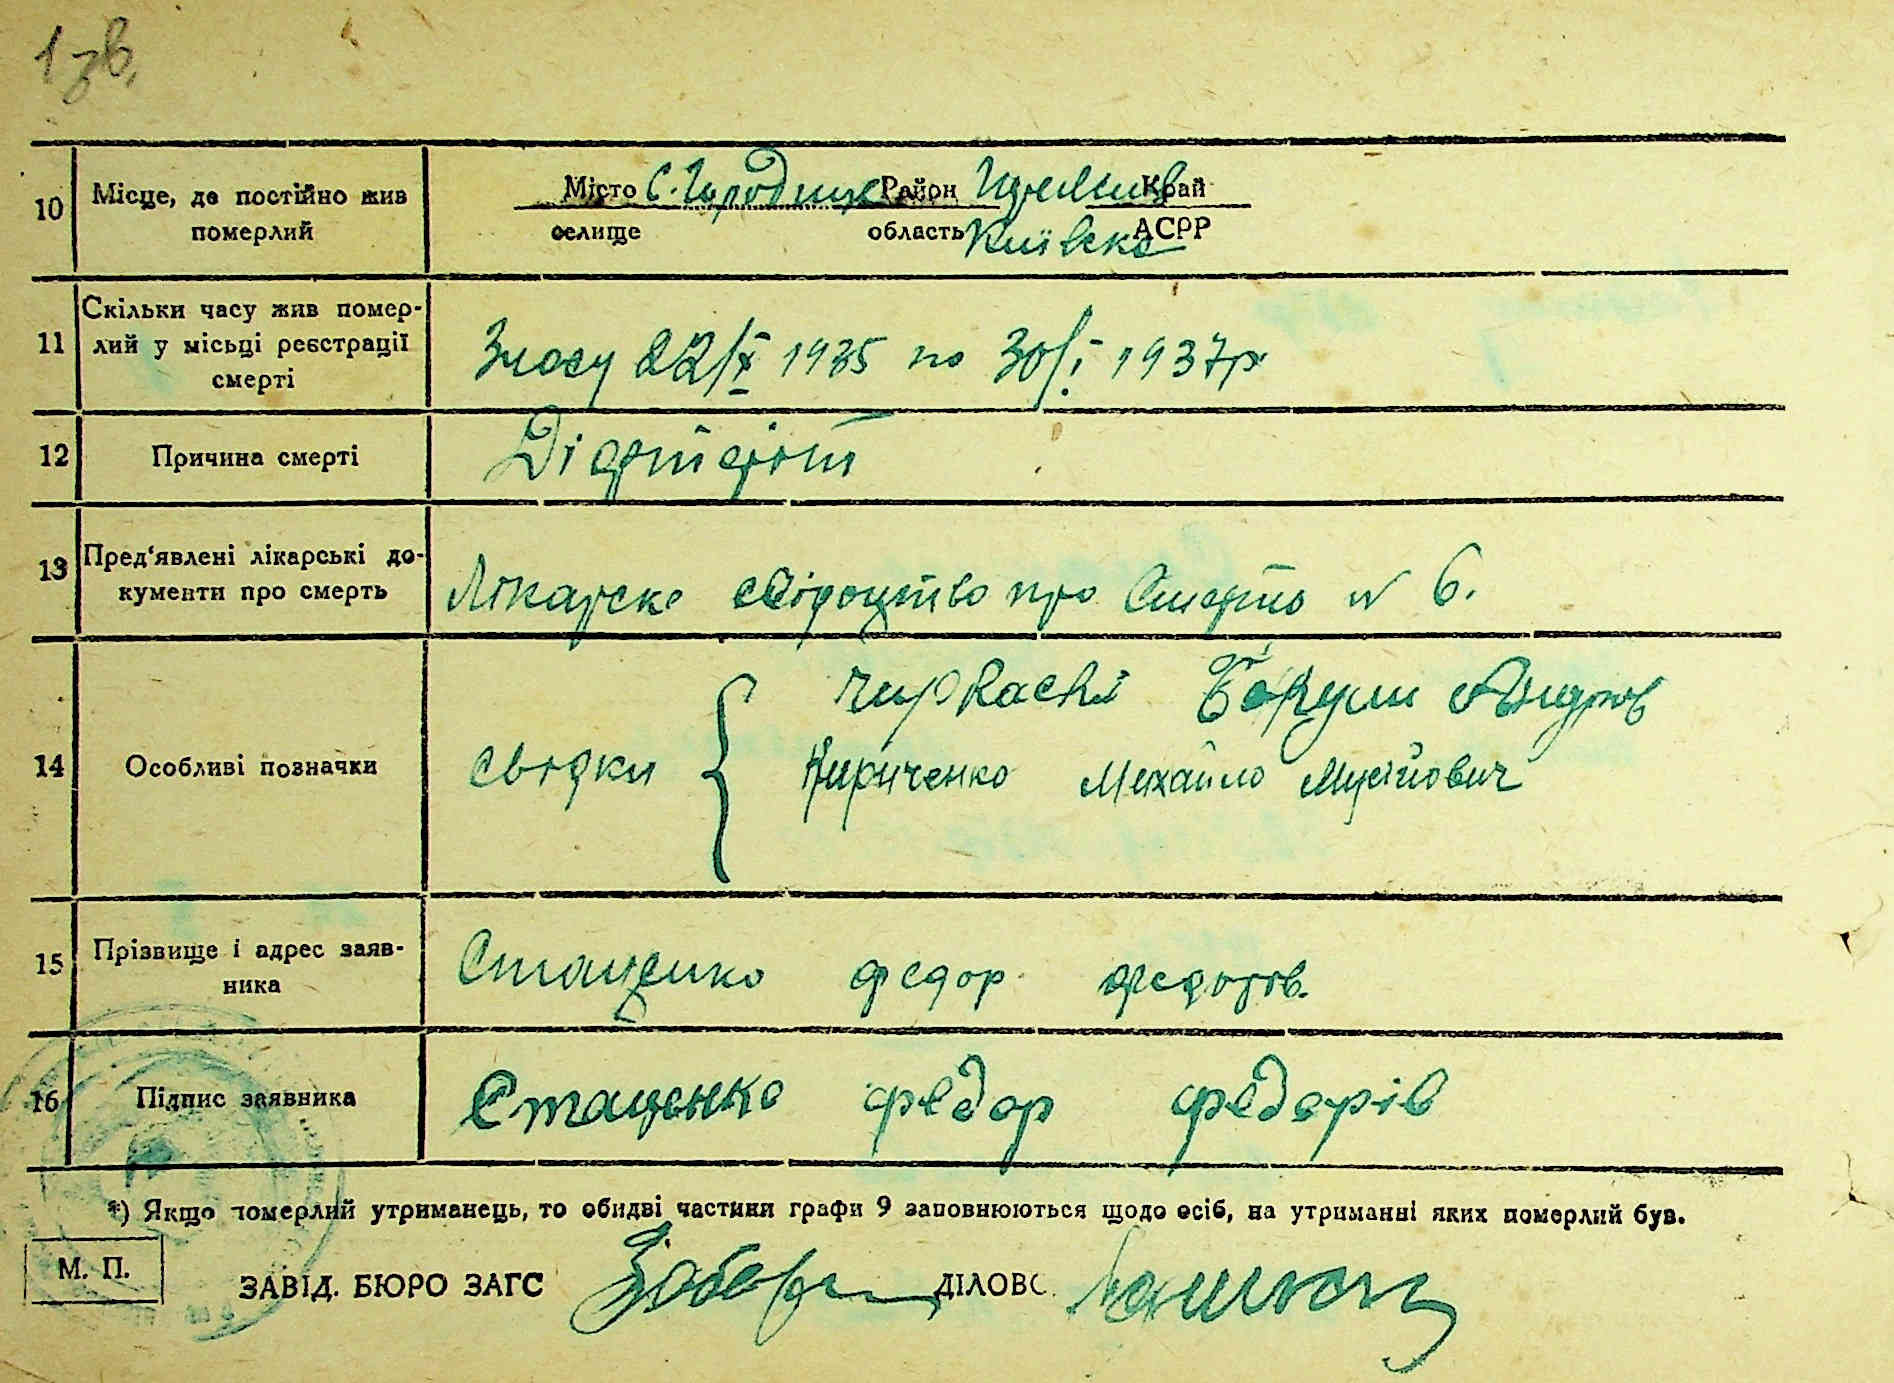 1 зв.
10 Місце, де постійно жив померлий Місто с. Городище Район Край
селище область Київська АСРР
11 Скільки часу жив помер-
лий у місьці реєстрації
смерті
22/X 1935 по 30/I 1937р
12 Причина смерті
13 Пред‘явлені лікарські до-
кументи про смерть
Лікарске про Смерть N 6.
14 Особливі позначки
свідки
Черкаський
Кириченко Михайло Мусійович
15 Прізвище і адрес заяв-
ника
Стаценко федор
16 Підпис заявника Стаценко федор федорів
*) Якщо померлий утриманець, то обидві частини графи 9 заповнюються щодо осіб, на утриманні яких померлий був.
М. П.
ЗАВІД. БЮРО ЗАГС ДІЛОВ.